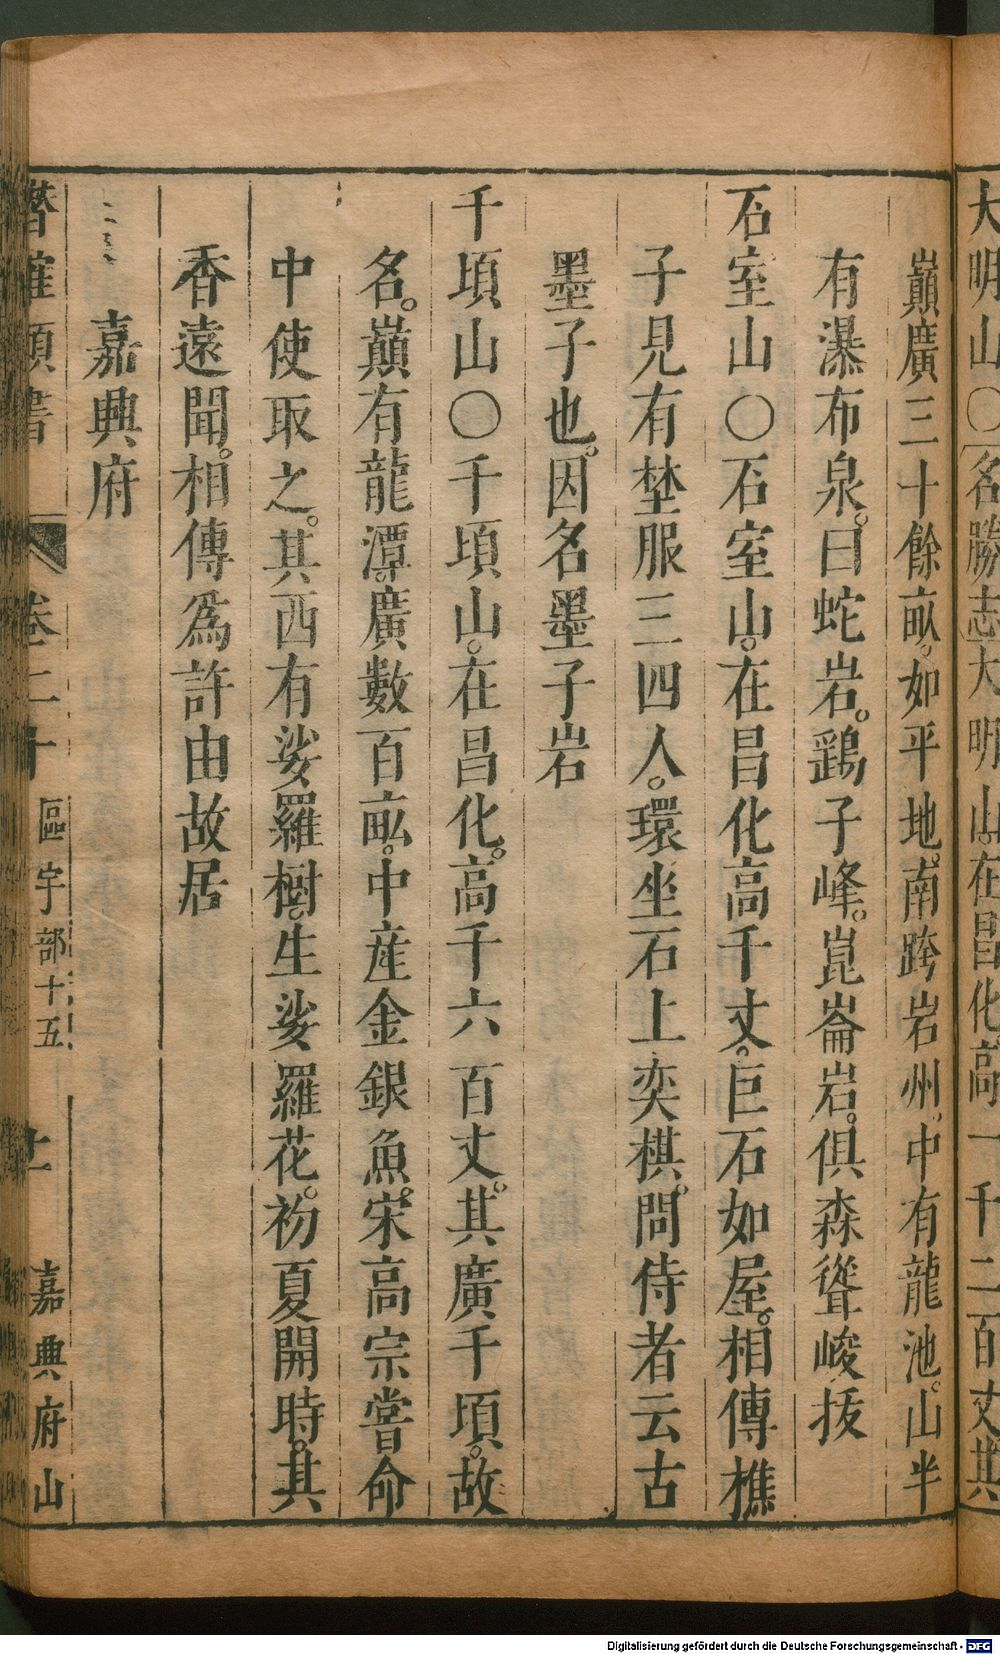 大明山〇名勝志大明山在昌化高一千二百丈其
巓廣三十餘畆如平地。南跨岩州。中有龍池。山半
有瀑布泉。曰蛇岩。鷂子峰。崑崙岩。俱森聳峻拔
石室山〇石室山。在昌化高千丈。巨石如屋。相傳樵
子見有埜服三四人。環坐石上奕棋。問侍者云古
墨子也。因名墨子岩
千頃山〇千頃山。在昌化。高千六百丈。其廣千頃。故
名。巓有龍潭。廣數百畆。中産金銀魚。宋高宗嘗命
中使取之。其西有娑羅樹。生娑羅花。初夏開時。其
香遠聞。相傳爲許由故居
嘉興府
潛確類書 卷二十 區宇部十五 嘉興府山
Digitalisierung gefördert durch die Deutsche Forschungsgemeinschaft - DFG